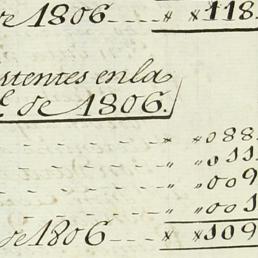 de 1806 „ „ 118
istentes en la
de 1806.
„ „ 088
„ „ 011
„ „ 009
„ „ 001
de 1806 „ „ 109